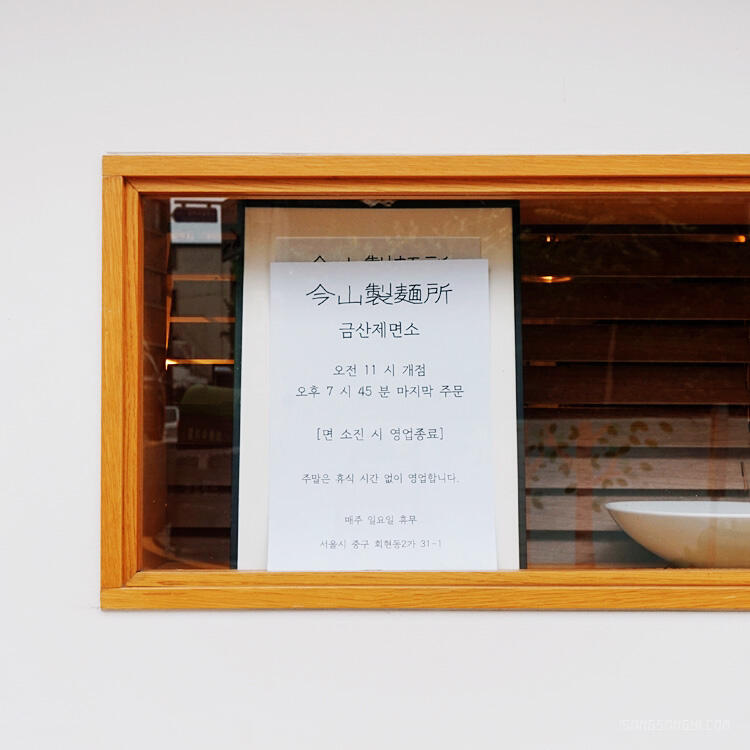 今山製麵所
금산제면소
오전 11 시 개점
오후 7 시 45 분 마지막 주문
[면 소진 시 영업종료]
주말은 휴식 시간 없이 영업합니다.
매주 일요일 휴무
서울시 중구 회현동2가 31-1